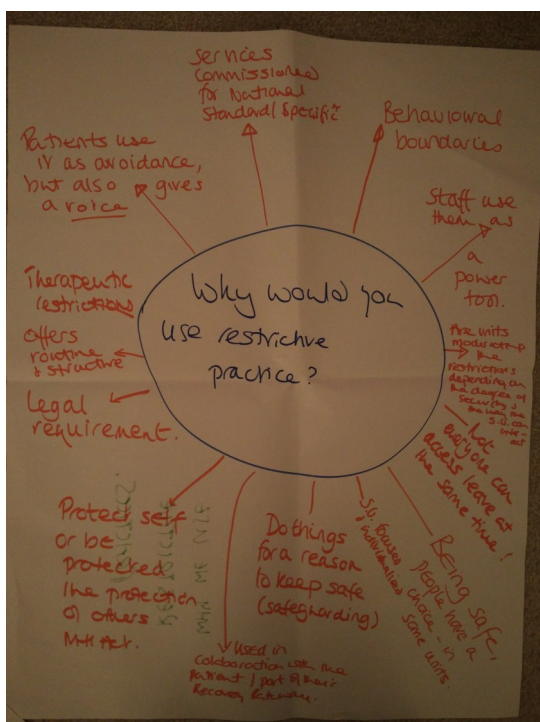 Why would you
use restrictive
practice?
Services
Commissioned
for National
Standard/Specific
Behavioural
boundaries
Staff use
them as
a
power
tool.
Are units
moderating
the
restrictions
depending on
the degree of
security &
the way the
S.U. can
Not
everyone can
access leave at
the same time!
Being safe,
people have a
choice - in
some units.
S.U. focused
& individualised
Do things
for a reason
to keep safe
(safegharding)
Used in
Colaboraction with the
Patient / part of their
Recovery Pathway.
Protect self
or be
protected
the protection
of others
MH Act.
Legal
requirement.
Offers
routine
& structure
Therapeutic
restrictions
Patients use
it as avoidance,
but also gives
a voice